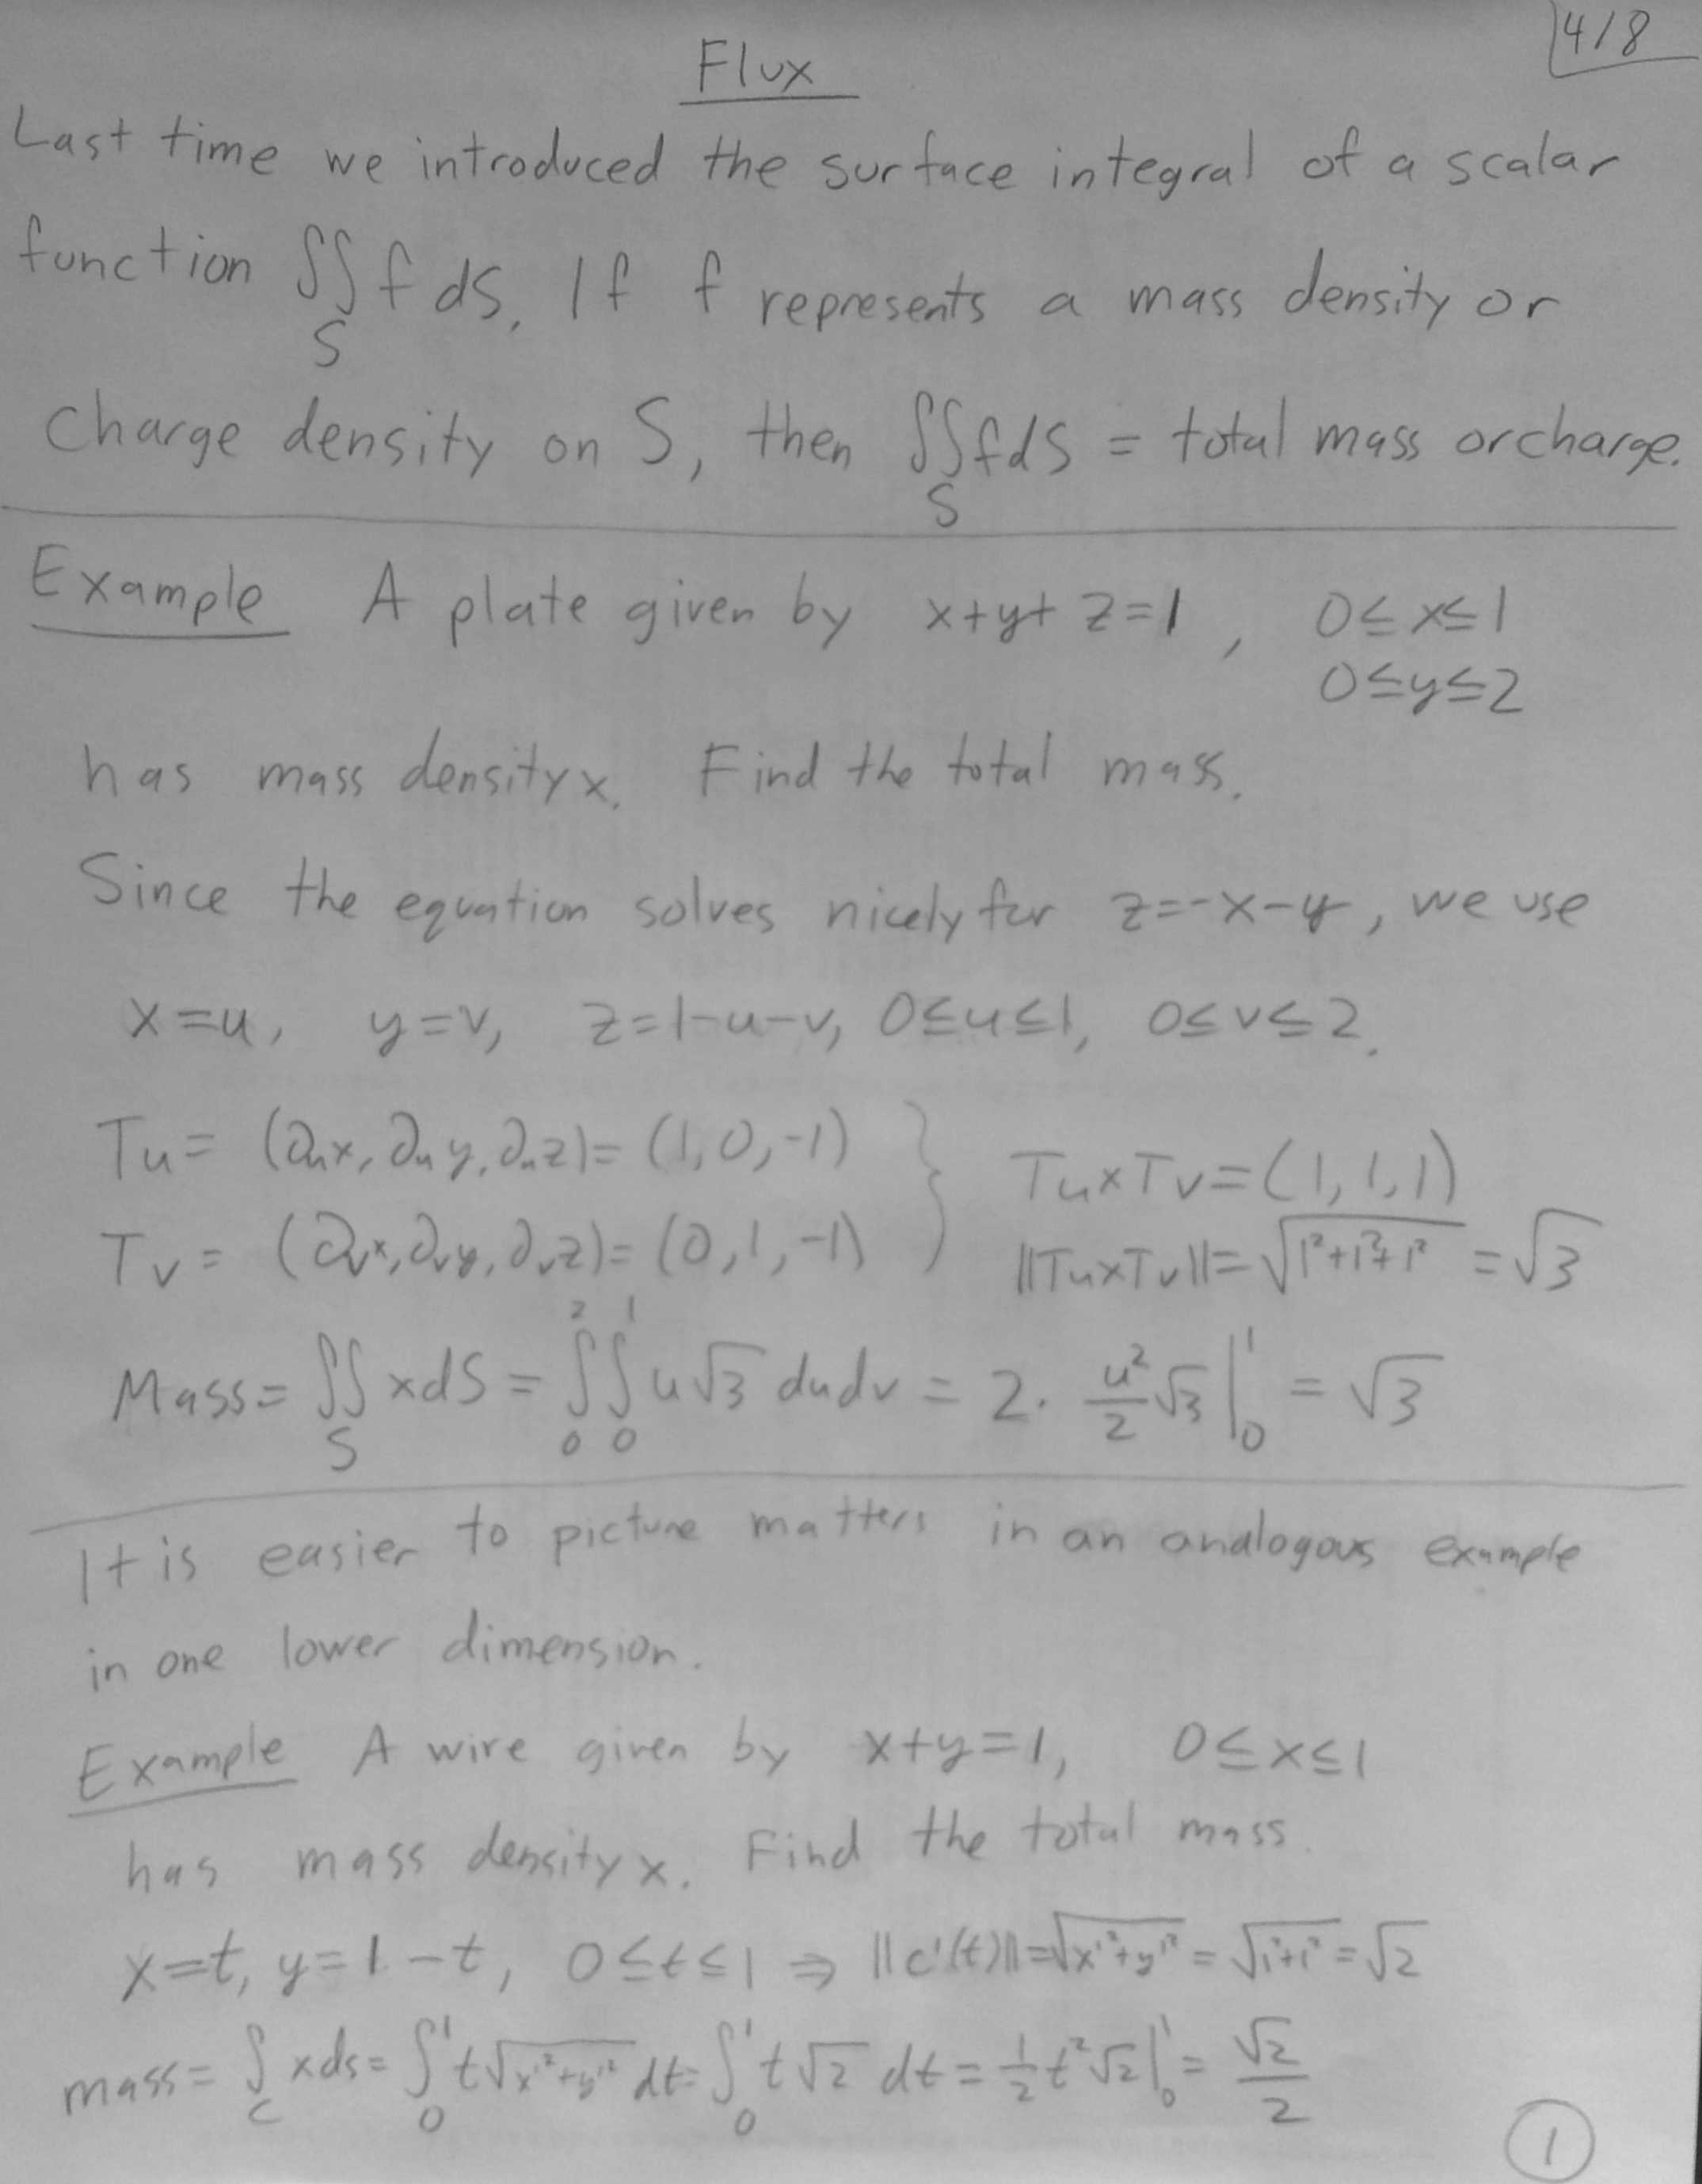 4/8
Flux
Last time we introduced the surface integral of a scalar
function ∬_S f dS. If f represents a mass density or
charge density on S, then ∬_S f dS = total mass or charge.
Example A plate given by x+y+z=1, 0≤x≤1
0≤y≤2
has mass density x. Find the total mass.
Since the equation solves nicely for z=-x-y, we use
x=u, y=v, z=1-u-v, 0≤u≤1, 0≤v≤2.
Tu = (∂ux, ∂uy, ∂uz) = (1,0,-1) } Tu×Tv=(1,1,1)
Tv = (∂vx, ∂vy, ∂vz) = (0,1,-1) ||Tu×Tv||=√(1²+1²+1²) = √3
Mass = ∬_S x dS = ∫_0^2 ∫_0^1 u√3 du dv = 2 · u²/2 √3 |_0^1 = √3
It is easier to picture matters in an analogous example
in one lower dimension.
Example A wire given by x+y=1, 0≤x≤1
has mass density x. Find the total mass.
x=t, y=1-t, 0≤t≤1 ⇒ ||c'(t)||=√(x'²+y'²) = √(1²+1²) = √2
mass = ∫_C x ds = ∫_0^1 t√(x'²+y'²) dt = ∫_0^1 t√2 dt = ½t²√2 |_0^1 = √2/2
1